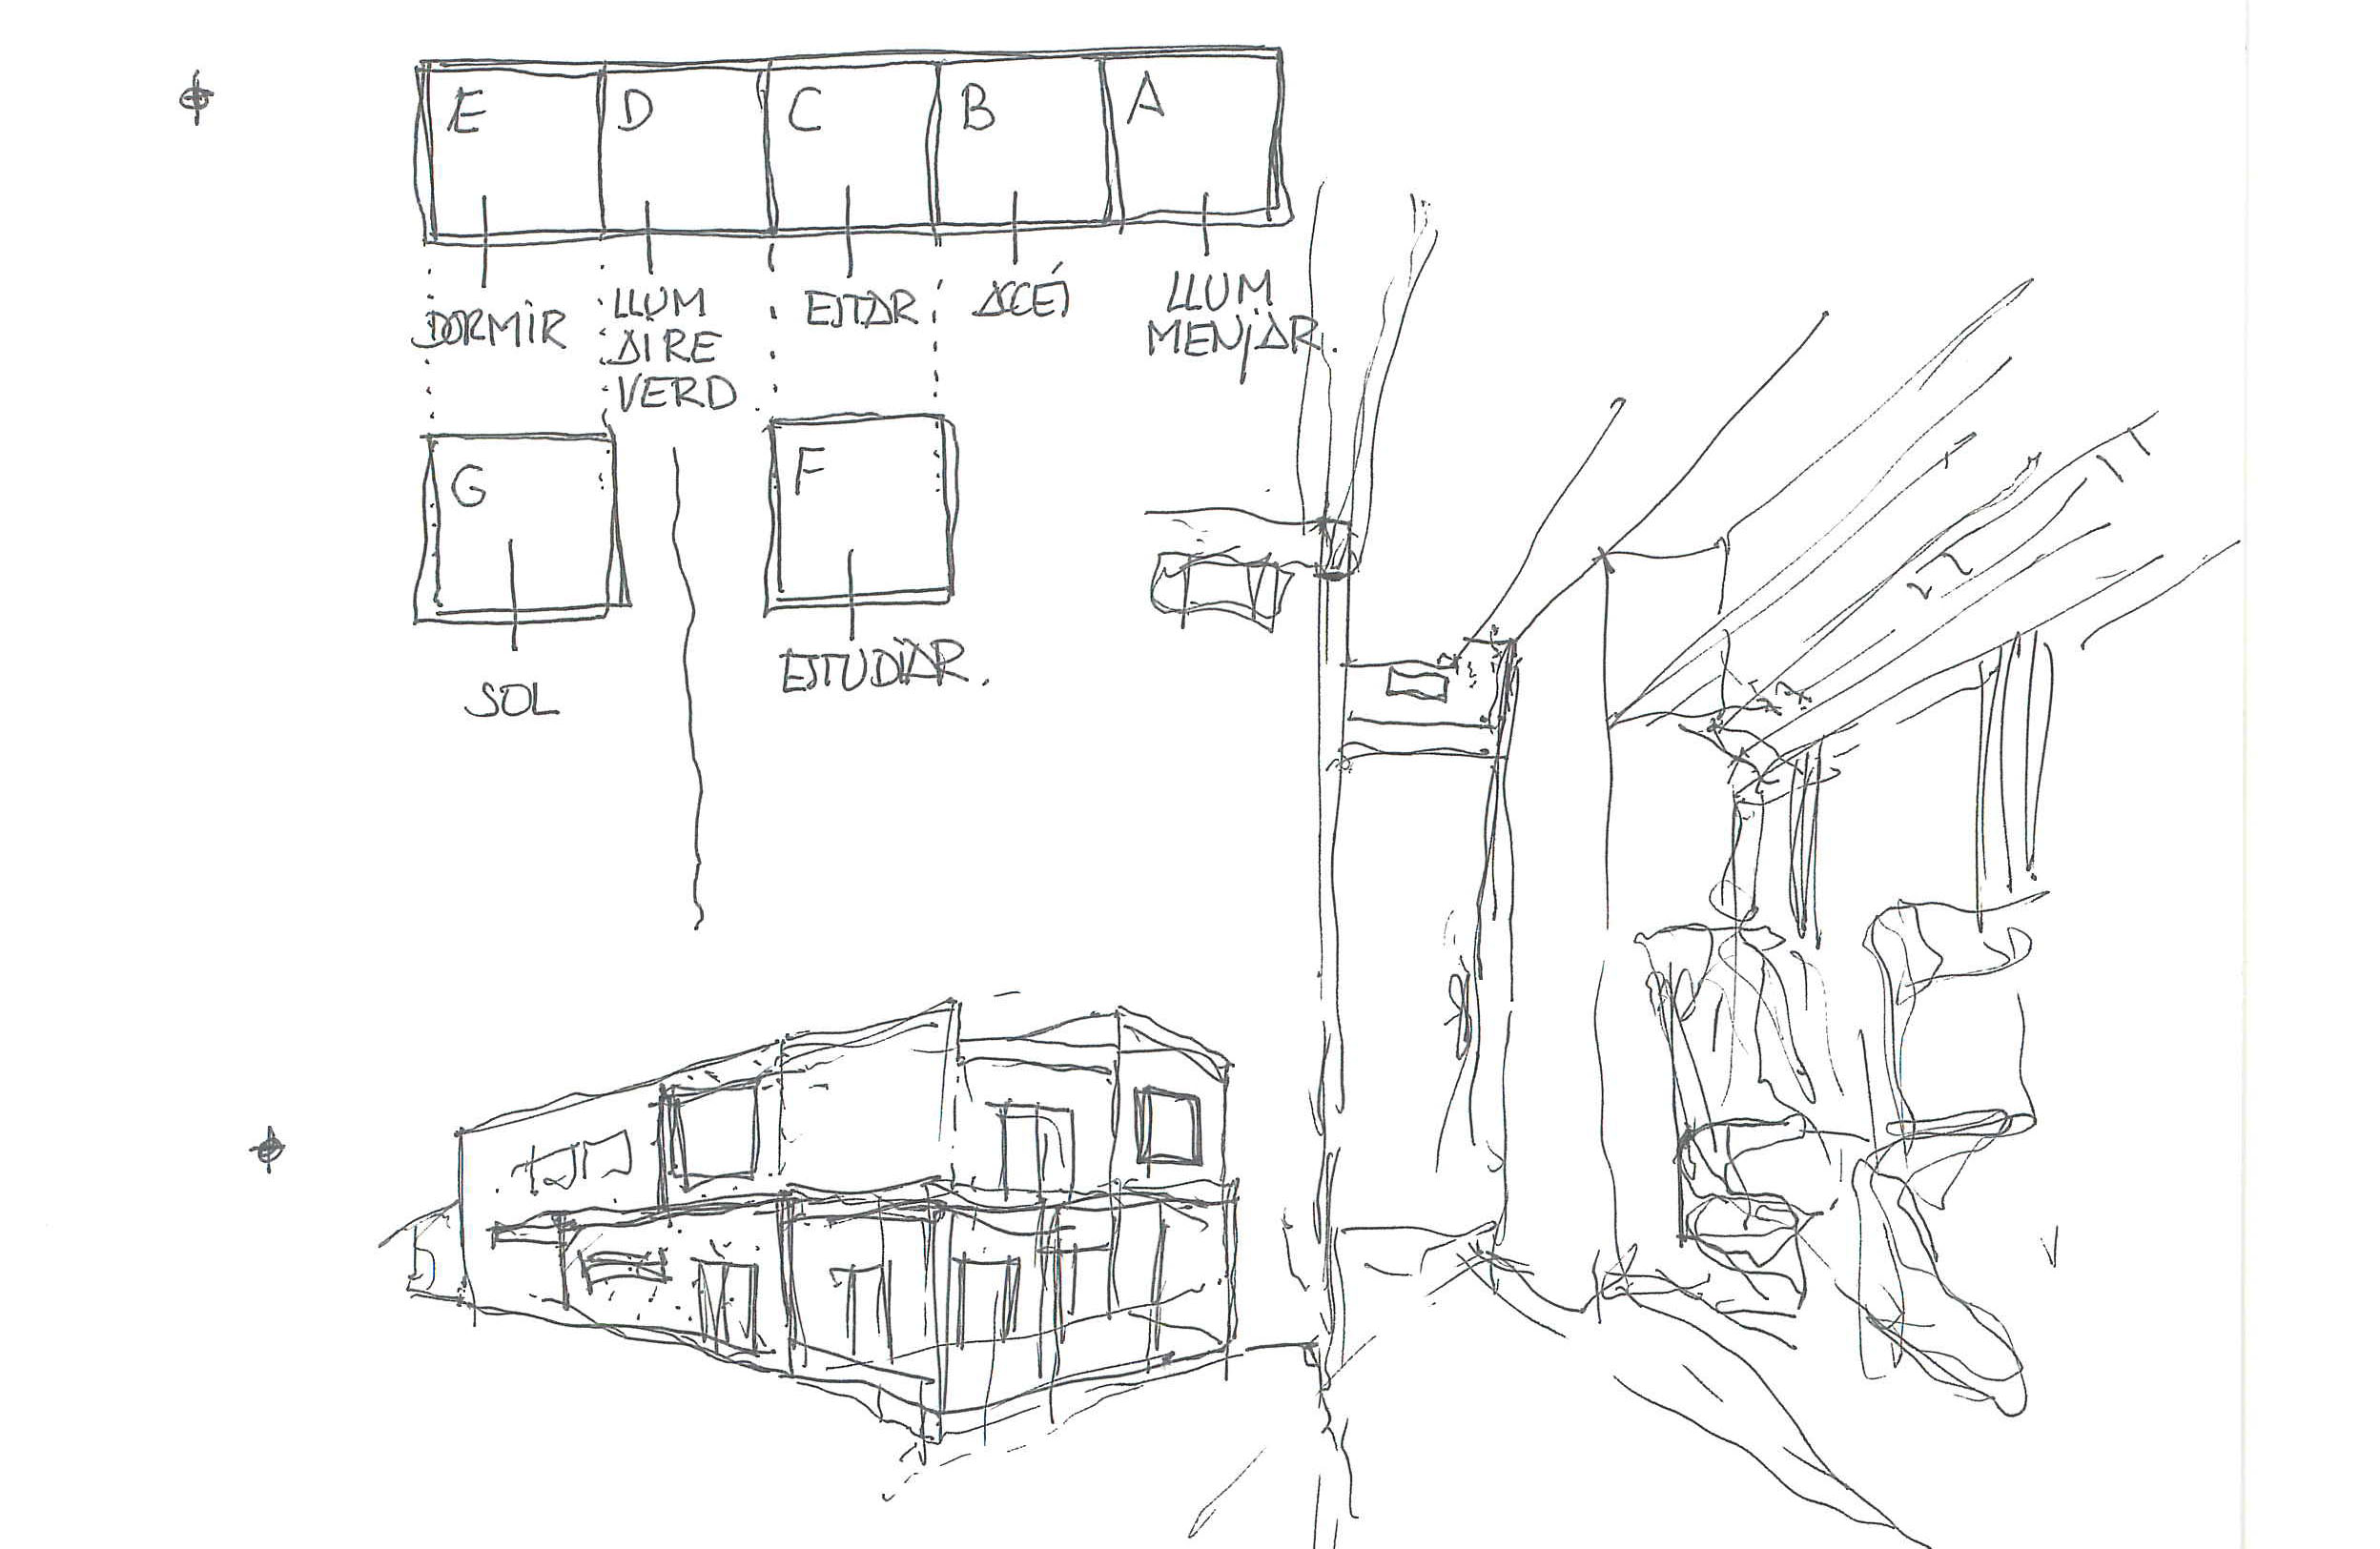 E D C B A
DORMIR
LLUM
AIRE
VERD
ESTAR
ACCÉS
LLUM
MENJAR.
G F
SOL
ESTUDIAR.